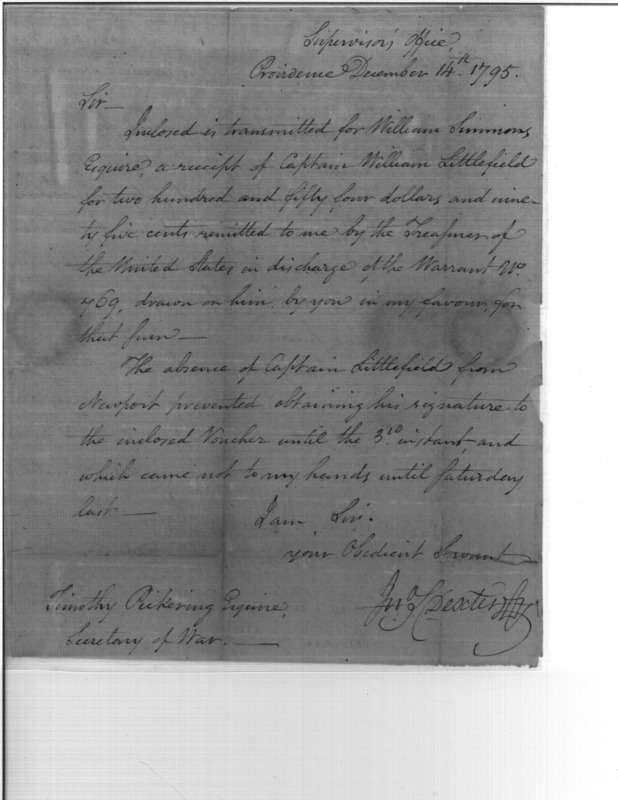 Supervisor's Office,
Providence December 14th. 1795.
Sir—
Inclosed is transmitted for William Simmons
Esquire, a receipt of Captain William Littlefield
for two hundred and fifty four dollars and nine-
ty five cents remitted to me by the Treasurer of
the United States in discharge of the Warrant No.
469, drawn on him by you in my favour, for
that sum—
The absence of Captain Littlefield from
Newport prevented obtaining his signature to
the inclosed Voucher until the 3rd. instant, and
which came not to my hands until Saturday
last—
I am, Sir.
your Obedient Servant
Dexter
Timothy Pickering Esquire,
Secretary of War.—